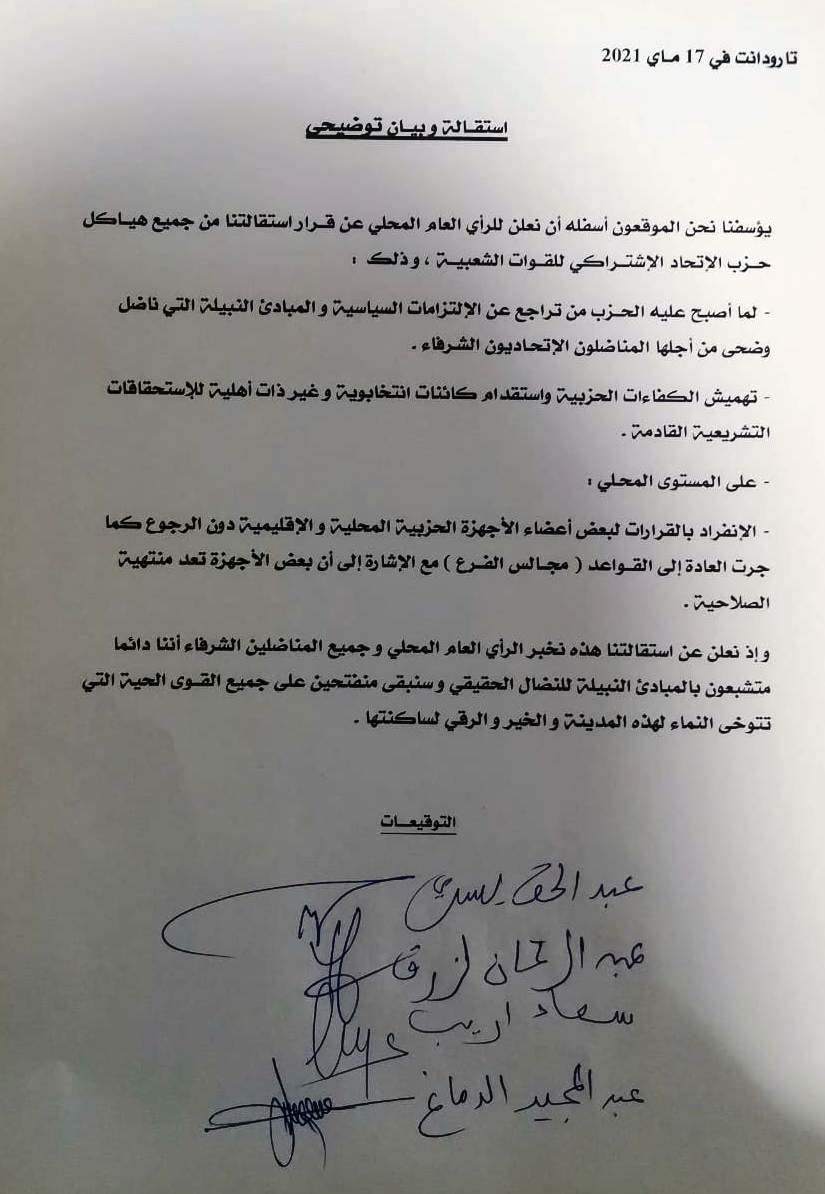 تارودانت في 17 ماي 2021
استقالة و بيان توضيحي
يؤسفنا نحن الموقعون أسفله أن نعلن للرأي العام المحلي عن قرار استقالتنا من جميع هياكل
حزب الإتحاد الإشتراكي للقوات الشعبية ، و ذلك :
- لما أصبح عليه الحزب من تراجع عن الإلتزامات السياسية و المبادئ النبيلة التي ناضل
وضحى من أجلها المناضلون الإتحاديون الشرفاء .
- تهميش الكفاءات الحزبية واستقدام كائنات انتخابوية و غير ذات أهلية للإستحقاقات
التشريعية القادمة .
- على المستوى المحلي :
- الإنفراد بالقرارات لبعض أعضاء الأجهزة الحزبية المحلية و الإقليمية دون الرجوع كما
جرت العادة إلى القواعد ( مجالس الفرع ) مع الإشارة إلى أن بعض الأجهزة تعد منتهية
الصلاحية .
و إذ نعلن عن استقالتنا هذه نخبر الرأي العام المحلي و جميع المناضلين الشرفاء أننا دائما
متشبعون بالمبادئ النبيلة للنضال الحقيقي و سنبقى منفتحين على جميع القوى الحية التي
تتوخى النماء لهذه المدينة و الخير و الرقي لساكنتها .
التوقيعات
عبد الحق يسري
عبد الرحمان لزرق
سعاد اريب
عبد المجيد الدماغ